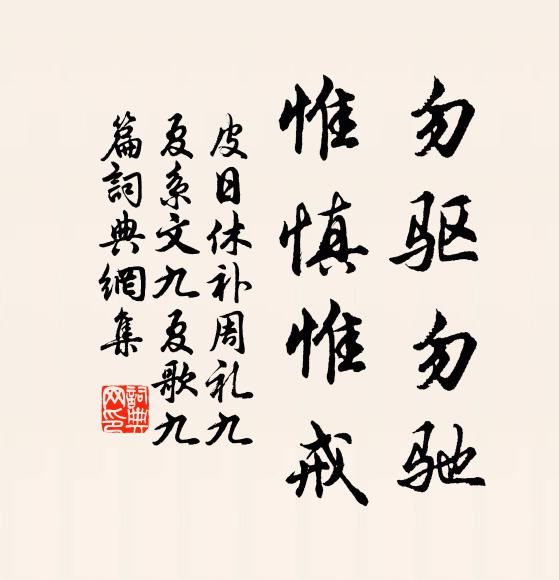 勿驱勿驰
惟慎惟戒
皮日休补周礼九
夏系文九夏歌九
篇词典網集
詞典
网印